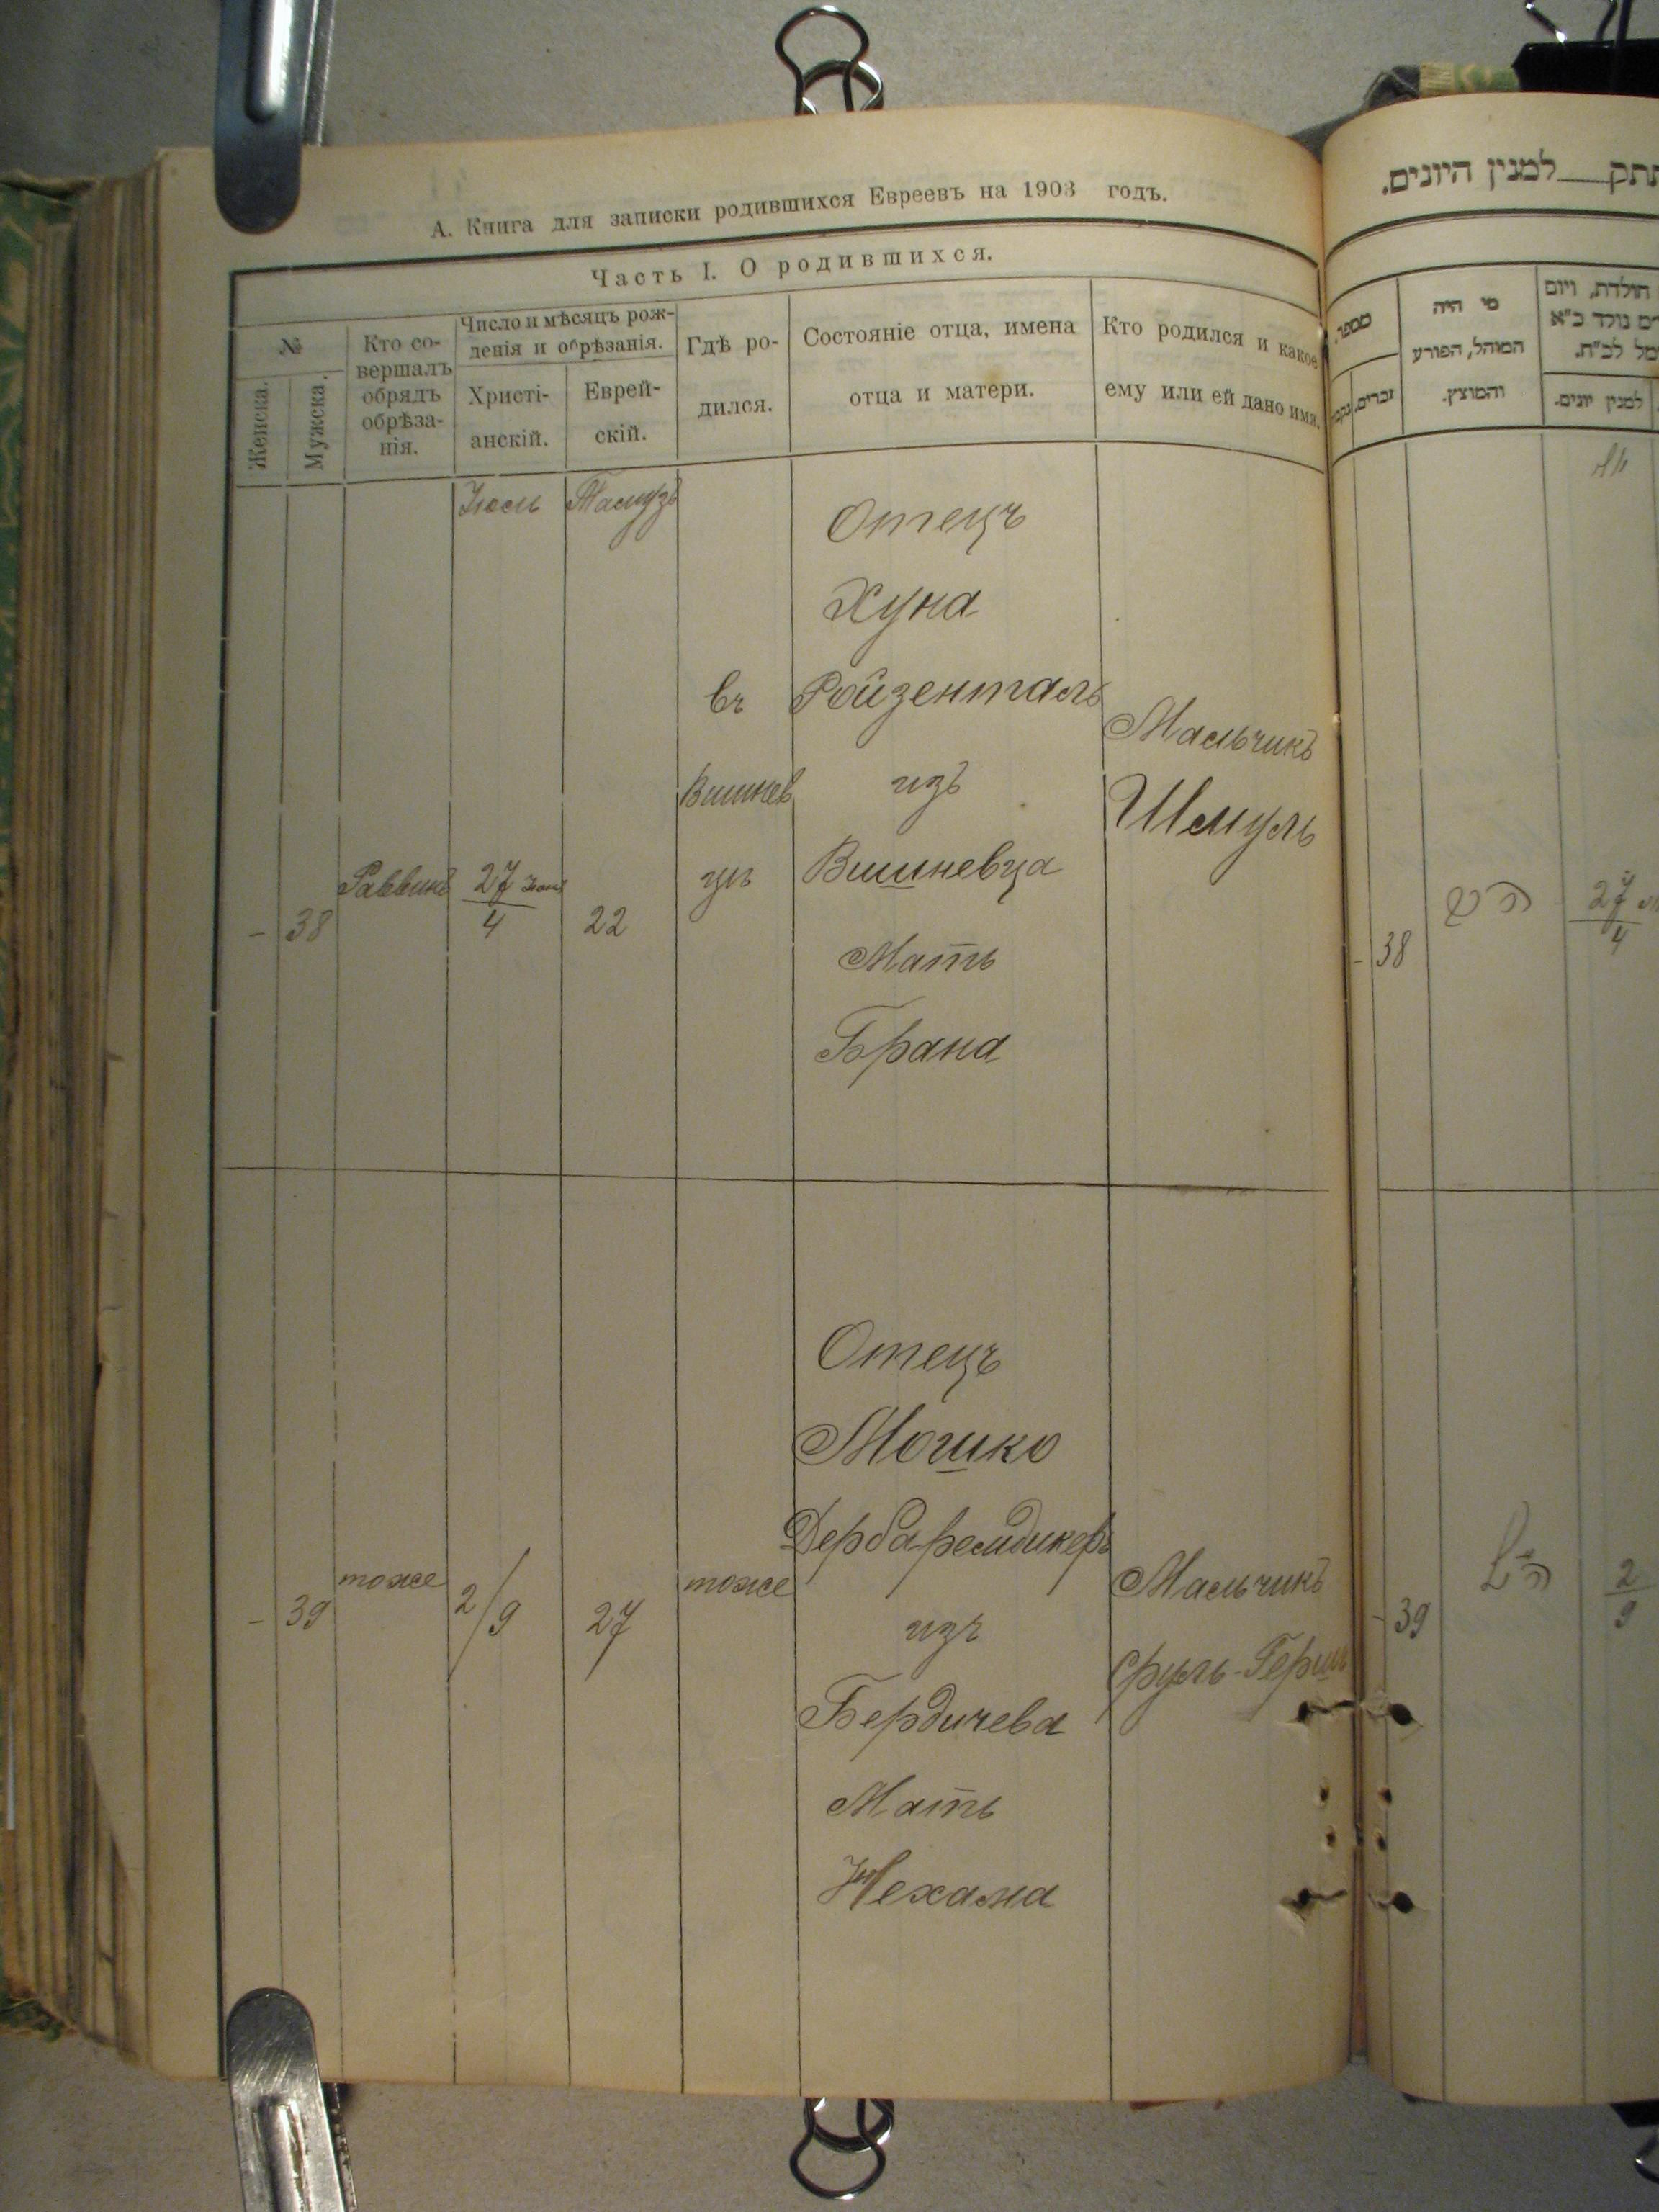 А. Книга для записки родившихся Евреевъ на 1903 годъ.
Часть I. О родившихся.
№
Женска.
Мужска.
Кто со-
вершалъ
обрядъ
обрѣза-
нія.
Число и мѣсяцъ рож-
денія и обрѣзанія.
Христі-
анскій.
Еврей-
скій.
Гдѣ ро-
дился.
Состояніе отца, имена
отца и матери.
Кто родился и какое
ему или ей дано имя.
Іюль
Тамузъ
- 38
Раввинъ
27 Іюня
4
22
въ
Вишнев
цѣ
Отецъ
Хуна
Ройзенталь
изъ
Вишневца
Мать
Брана
Мальчикъ
Шмуль
- 39
тоже
2/9
27
тоже
Отецъ
Мошко
Дербаремдикеръ
изъ
Бердичева
Мать
Нехама
Мальчикъ
Сруль-Герш
למנין היונים.
מספר
זכרים
מי היה
המוהל, הפורע
והמוצץ.
תולדת, ויום
נולד כ"א
לכ"ח.
למנין יונים.
- 38
27
4
- 39
2
9